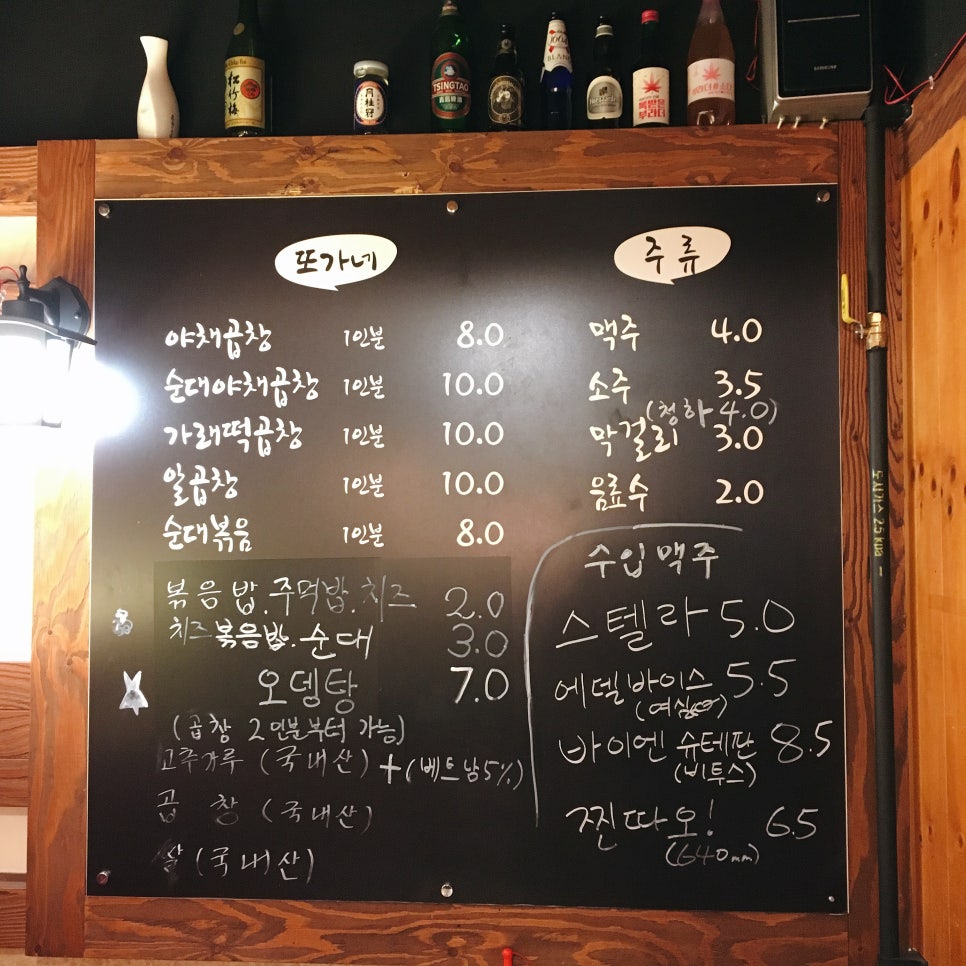 松竹梅
月桂冠
TSINGTAO
1664
BLANC
복받은
부라더
SAMSUNG
또가네
야채곱창 1인분 8.0
순대야채곱창 1인분 10.0
가래떡곱창 1인분 10.0
알곱창 1인분 10.0
순대볶음 1인분 8.0
볶음밥.주먹밥.치즈 2.0
치즈볶음밥.순대 3.0
오뎅탕 7.0
(곱창 2인분부터 가능)
고추가루 (국내산) + (베트남5%)
곱 창 (국내산)
쌀 (국내산)
주류
맥주 4.0
소주 3.5
(청하 4.0)
막걸리 3.0
음료수 2.0
수입맥주
스텔라 5.0
에델바이스 5.5
바이엔슈테판 8.5
(비투스)
찐따오! 6.5
(640mm)
도시가스 2.5 kPa